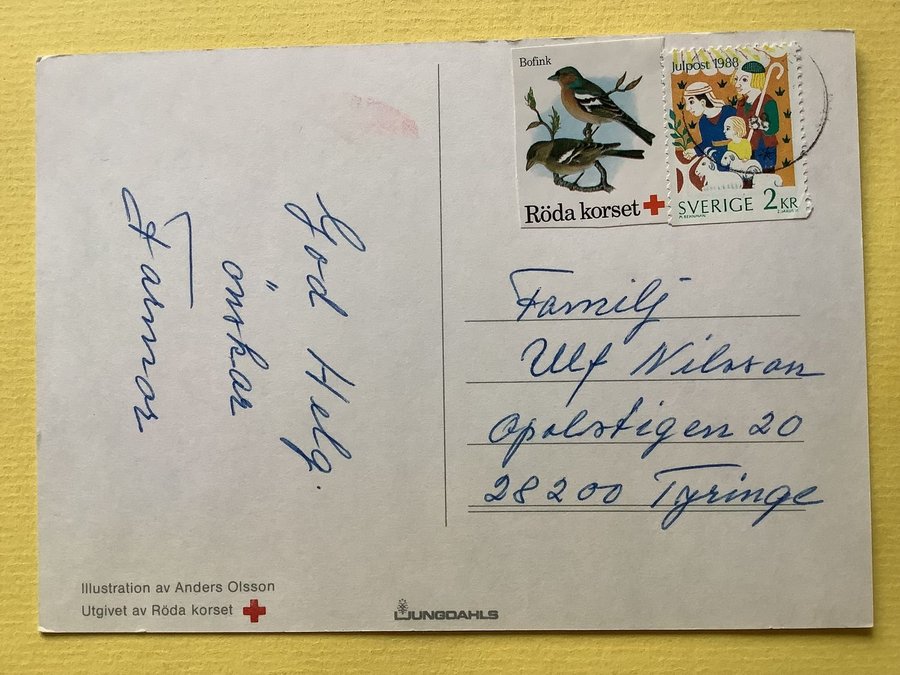 Bofink
Röda korset
Julpost 1988
SVERIGE 2 KR
God Helg.
önskar
Farmor
Familj
Ulf Nilsson
Opalstigen 20
28200 Tyringe
Illustration av Anders Olsson
Utgivet av Röda korset
LJUNGDAHLS